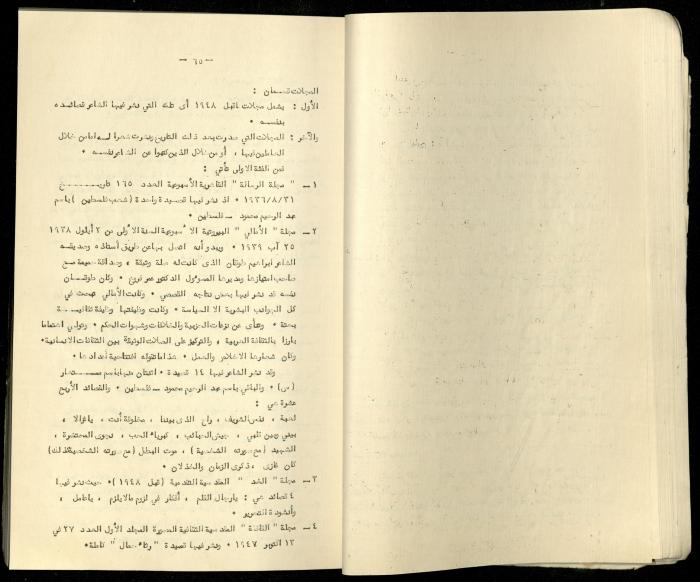 — ٦٥ —
المجلات قسمان :
الأول : يشمل مجلات ماقبل ١٩٤٨ أى تلك التي نشر فيها الشاعر قصائده
بنفسه •
والآخر : المجلات التي صدرت بعد ذلك التاريخ ونشرت شعرا له اما من خلال
العاملين فيها ، أو من خلال الذين كتبوا عن الشاعر نفسه •
فمن الفئة الاولى نأتي :
١ — " مجلة الرسالة " القاهرية الأسبوعية العدد ١٦٥ تاريخ
١٩٣٦/٨/٣١ • اذ نشر فيها قصيدة واحدة ( شعب فلسطين ) باسم
عبد الرحيم محمود — فلسطين •
٢ — مجلة " الأمالي " البيروتية الأسبوعية السنة الأولى من ٢ أيلول ١٩٣٨
٢٥ آب ١٩٣٩ • ويبدو أنه اتصل بها عن طريق أستاذه وصديقه
الشاعر ابراهيم طوقان الذى كانت له صلة وثيقة ، وصداقة حميمة مع
صاحب امتيازها ومديرها المسؤول الدكتور عمر فروخ • وكان طوقان
نفسه قد نشر فيها بعض نتاجه القصصي • وكانت الأمالي تبحث في
كل الجوانب البشرية الا السياسة • وكانت وظيفتها وظيفة ثقافية
بحتة • وتنأى عن نزعات الحزبية والخلافات وشهوات الحكم • وتولي اهتماما
بارزا بالثقافة العربية ، والتركيز على الصلات الوثيقة بين الثقافات الانسانية•
وكان شعارها الاخلاص والعمل • هذا ماتقوله افتتاحية أعدادها •
وقد نشر الشاعر فيها ١٤ قصيدة • اثنتان منها باسم مستعار
( س ) • والباقي باسم عبد الرحيم محمود — فلسطين • والقصائد الأربع
عشرة هي :
لهبة ، نفس الشريف ، راح الذى بيننا ، مظلومة أنت ، ياغزالا ،
بيني وبين قلبي ، جيش المصائب ، كهرباء الحب ، نجوى المحتضرة ،
الشهيد ( مع صورته الشخصية ) ، موت البطل ( مع صورته الشخصية كذلك )
كان غازى ، ذكرى الزمان والخذلان •
٣ — مجلة " الغد " المقدسية التقدمية ( قبل ١٩٤٨ ) • حيث نشر فيها
٤ قصائد هي : يارجال القلم ، أفكار في لزوم مالايلزم ، ياعامل ،
وأنشودة التحرير •
٤ — مجلة " القافلة " المقدسية الثقافية المصورة المجلد الأول العدد ٢٧ في
١٣ اكتوبر ١٩٤٧ • ونشر فيها قصيدة " رثاء حمال " كاملة•